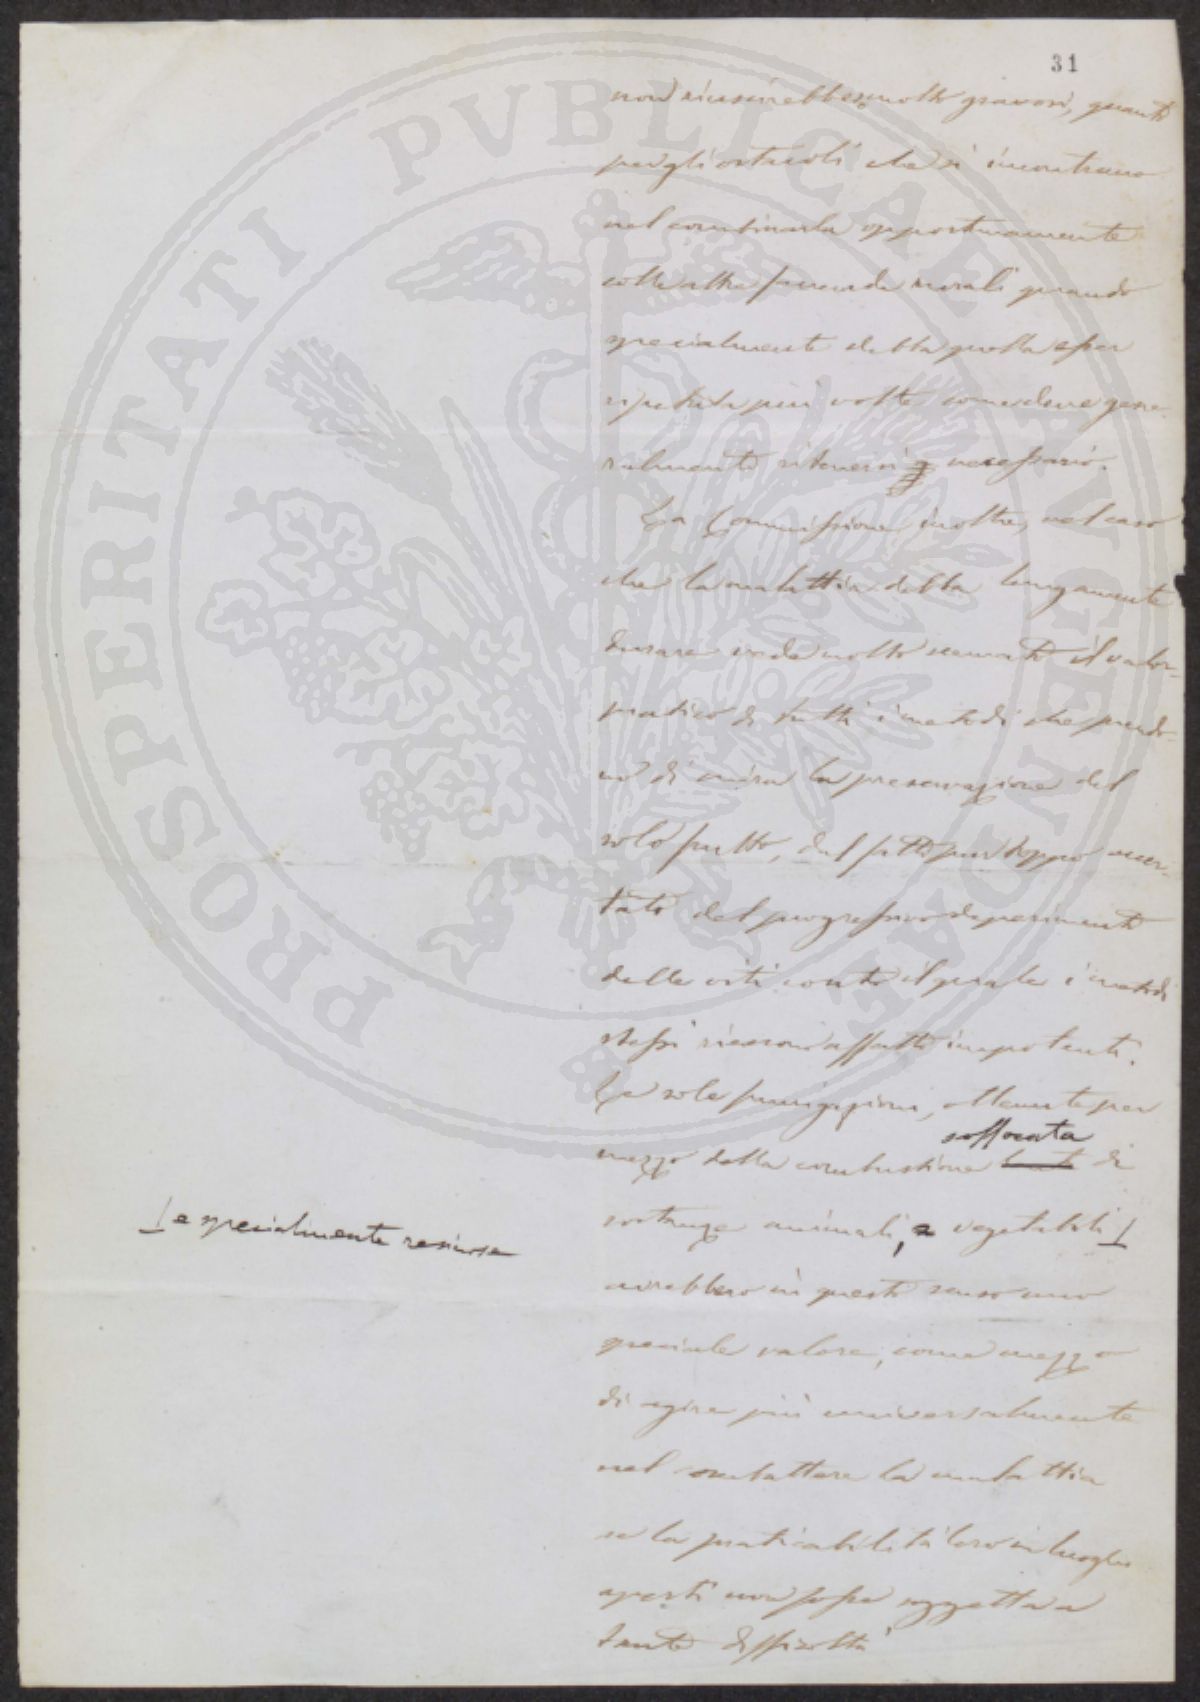 31
non riuscirebbero molto gravosi, quanto
per gli ostacoli che si incontrano
nel combinarla opportunamente
colle altre faccende rurali quando
specialmente debba quella esser
ripetuta più volte come deve gene-
ralmente ritenersi necessario.
La Commissione inoltre, nel caso
che la malattia debba lungamente
durare vede molto scemato il valor
pratico di tutti i metodi che prendo-
no di mira la preservazione del
solo frutto, dal fatto pur troppo accer-
tato del progressivo deperimento
delle viti contro il quale i metodi
stessi riescono affatto impotenti.
Le sole fumigazioni, ottenute per
soffocata
mezzo della combustione lenta di
sostanze animali, e vegetabili
e specialmente resinose
avrebbero in questo senso uno
speciale valore, come mezzo
di agire più universalmente
nel combattere la malattia
se la praticabilità loro in luoghi
aperti non fosse soggetta a
tante difficoltà
PROSPERITATI PVBLICAE AVGENDAE